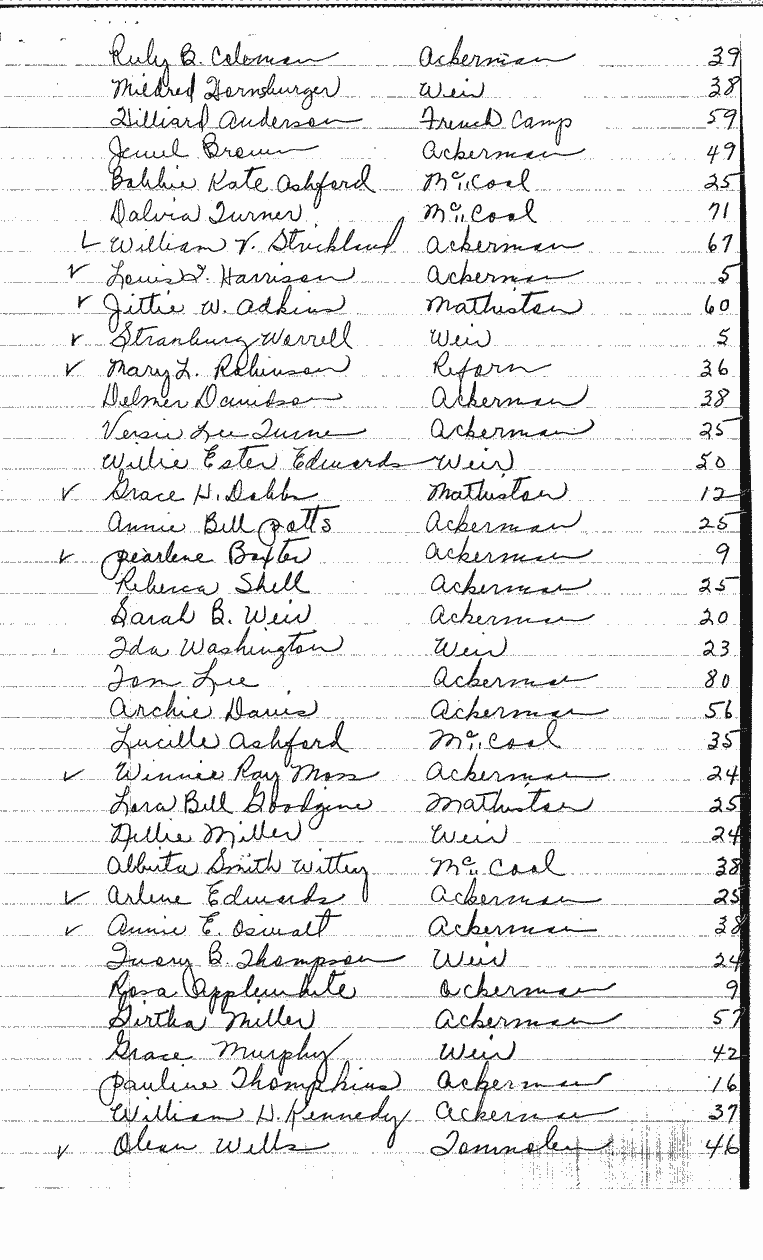 Ruby B. Coleman Ackerman 39
Mildred Hornsburger Weir 38
Hilliard Anderson French Camp 59
Jewel Brown Ackerman 49
Bobbie Kate Ashford Mc Cool 25
Dalvia Turner Mc Cool 71
✓ William V. Strickland Ackerman 67
✓ Louis Harrison Ackerman 5
✓ Jittie W. Adkins Mathiston 60
✓ Stranburg Worrell Weir 5
✓ Mary L. Robinson Reform 36
Delmer Davidson Ackerman 38
Versie Lee Turner Ackerman 25
Willie Ester Edwards Weir 50
✓ Grace H. Dobbs Mathiston 12
Annie Bell Potts Ackerman 25
✓ Pearlene Baxter Ackerman 9
Rebecca Shell Ackerman 25
Sarah B. Weir Ackerman 20
Ida Washington Weir 23
Tom Lee Ackerman 80
Archie Davis Ackerman 56
Lucille Ashford Mc Cool 35
✓ Winnie Ray Moss Ackerman 24
Lora Bell Goodgine Mathiston 25
Nellie Miller Weir 24
Alberta Smith Witty Mc Cool 38
✓ Arlene Edwards Ackerman 25
✓ Annie E. Oswalt Ackerman 38
Ivory B. Thompson Weir 24
Rosa Applewhite Ackerman 9
Girtha Miller Ackerman 57
Grace Murphy Weir 42
Pauline Thompkins Ackerman 16
William H. Kennedy Ackerman 37
✓ Olean Wells Tomnolen 46